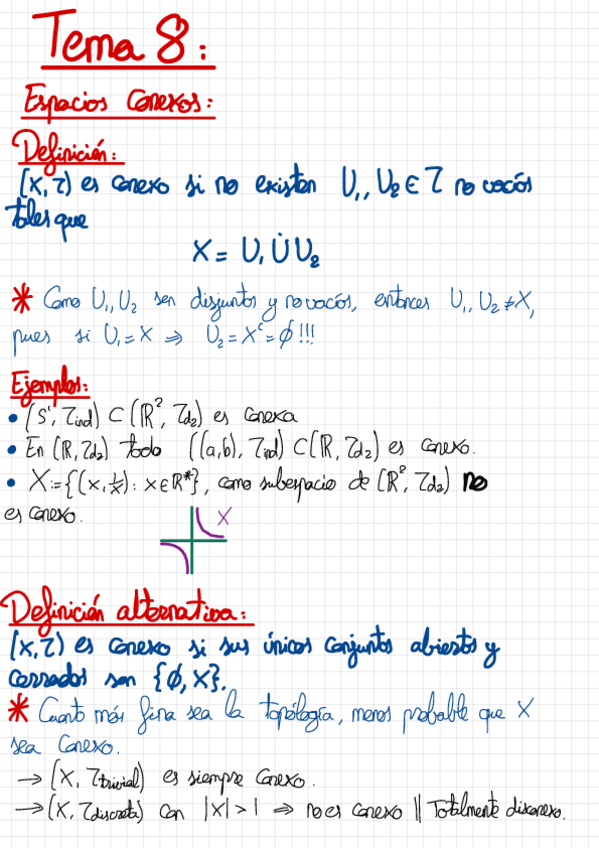 Tema 8:
Espacios Conexos:
Definición:
(X, τ) es conexo si no existen U₁, U₂ ∈ τ no vacíos
tales que
X = U₁ ∪̇ U₂
* Como U₁, U₂ son disjuntos y no vacíos, entonces U₁, U₂ ≠ X,
pues si U₁ = X ⇒ U₂ = Xᶜ = ∅!!!
Ejemplos:
• (S¹, τind) ⊂ (ℝ², τd₂) es conexa
• En (ℝ, τd₂) todo ((a,b), τind) ⊂ (ℝ, τd₂) es conexo.
• X := {(x, 1/x) : x ∈ ℝ*}, como subespacio de (ℝ², τd₂) no
es conexo.
X
Definición alternativa:
(X, τ) es conexo si sus únicos conjuntos abiertos y
cerrados son {∅, X}.
* Cuanto más fina sea la topología, menos probable que X
sea conexo.
→ (X, τtrivial) es siempre conexo.
→ (X, τdiscreta) con |X| > 1 ⇒ no es conexo || Totalmente disconexo.